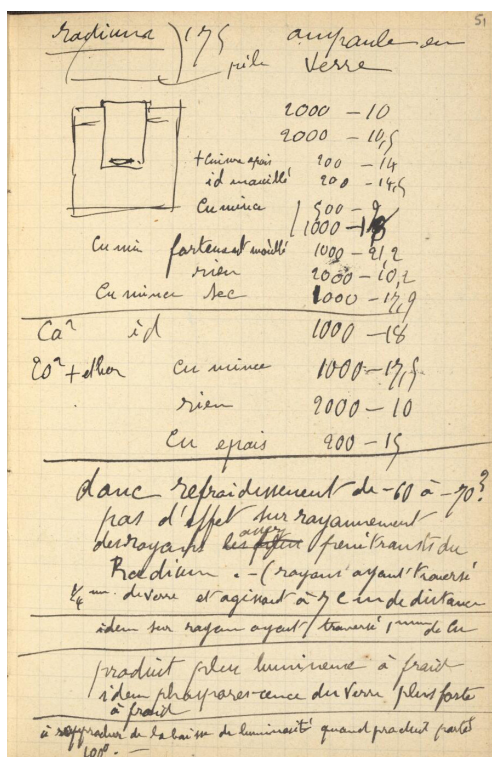 51
radium ) 175 ampoule en
pile verre
2000 – 10
2000 – 10,5
+ Cuivre epais 200 – 14
id mouillé 200 – 14,5
Cu mince 500 – 9
1000 – 18
Cu min fortement mouillé 1000 – 21,2
rien 2000 – 10,2
Cu mince sec 1000 – 17,9
id 1000 – 18
+ ether Cu mince 1000 – 17,5
rien 2000 – 10
Cu epais 200 – 15
donc refroidissement de -60 à -70?
pas d'effet sur rayonnement
des rayons assez penetrants du
Radium. – (rayons ayant traversé
de verre et agissant à 7 cm de distance
idem sur rayon ayant traversé 1 mm de Cu
produit plus lumineux à froid
idem phosphorescence du verre plus forte
à froid
à rapprocher de la baisse de luminosité quand produit porté
100°. –